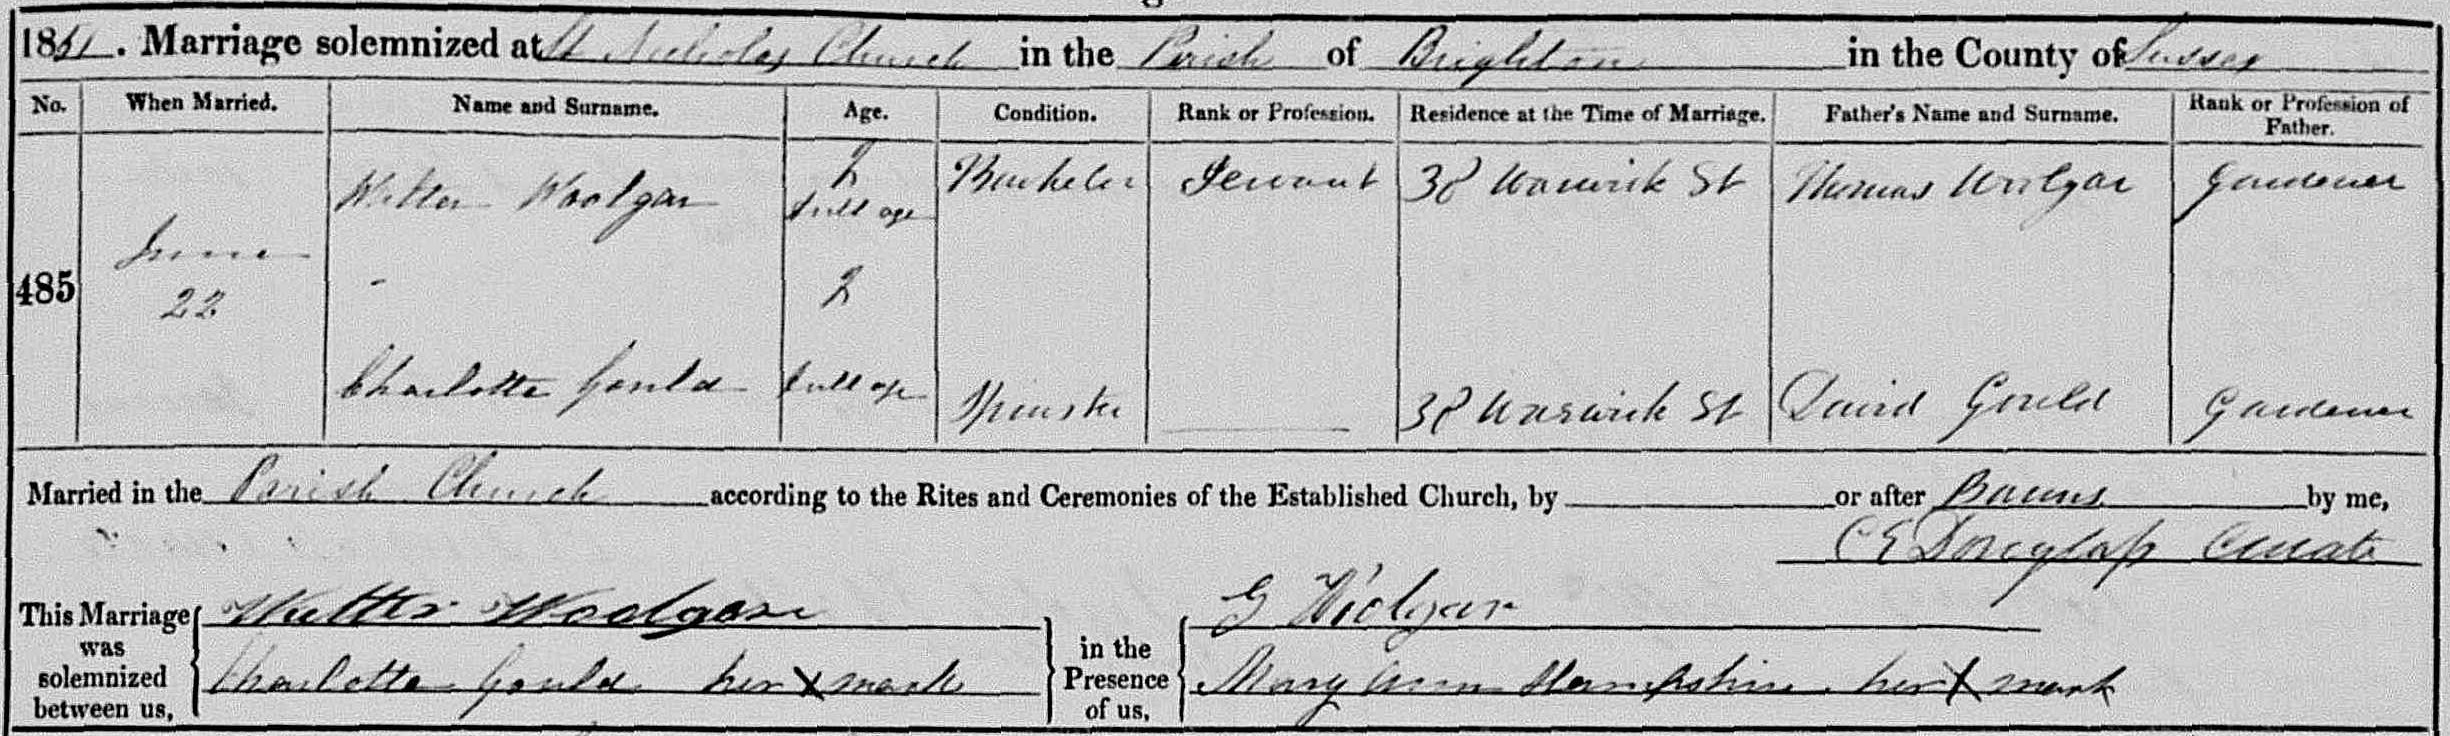 1851. Marriage solemnized at St Nicholas Church in the Parish of Brighton in the County of Sussex
No. When Married. Name and Surname. Age. Condition. Rank or Profession. Residence at the Time of Marriage. Father's Name and Surname. Rank or Profession of Father.
485 June 22 Woolgar full age Bachelor Servant 38 Warwick St Thomas Woolgar Gardener
Charlotte Gould full age Spinster 38 Warwick St David Gould Gardener
Married in the Parish Church according to the Rites and Ceremonies of the Established Church, by or after Banns by me,
C E Douglass Curate
This Marriage was solemnized between us, Woolgar in the Presence of us, G Wolgar
Charlotte Gould her X mark Mary Ann Hampshire her X mark